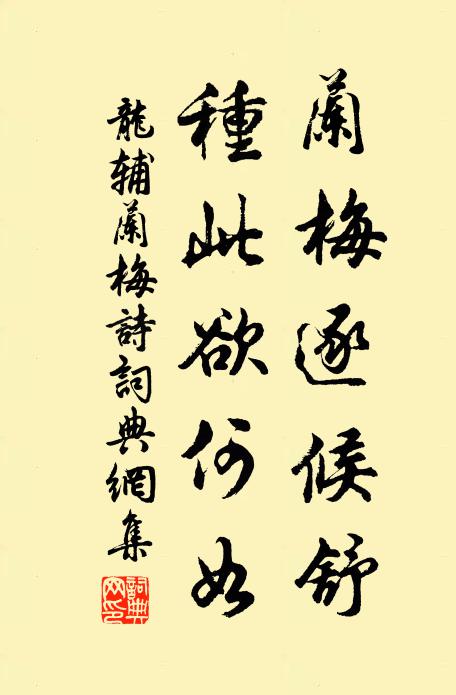 蘭梅逐候舒
種此欲何如
龍輔蘭梅詩詞典網集
詞典網印